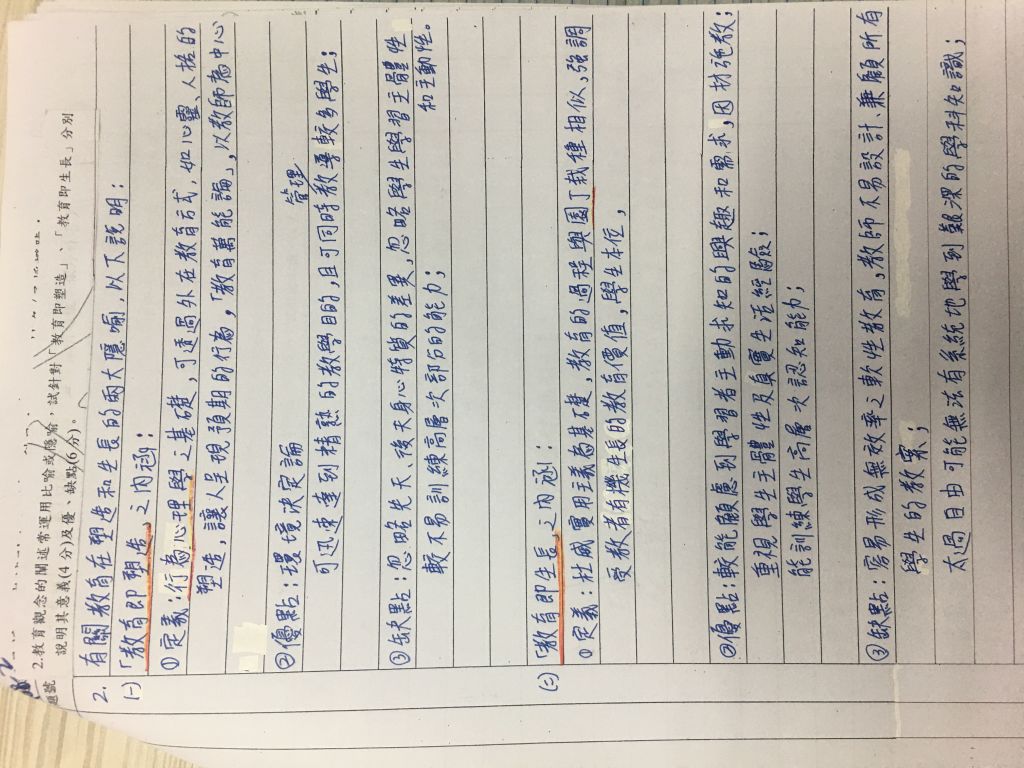 2.教育觀念的闡述常運用比喻或隱喻，試針對「教育即塑造」、「教育即生長」分別
說明其意義(4分)及優、缺點(6分)。
題號
2. 有關教育在塑造和生長的兩大隱喻，以下說明：
(一) 「教育即塑造」之內涵：
①定義：行為心理學之基礎，可透過外在教育方式，如心靈、人格的
塑造，讓人呈現預期的行為，「教育萬能論」，以教師為中心
②優點：環境決定論
管理
可迅速達到精熟的教學目的，且可同時教導較多學生；
③缺點：忽略先天、後天身心特質的差異，忽略學生學習主體性
和主動性。
較不易訓練高層次部份的能力；
(二) 「教育即生長」之內涵：
①定義：杜威實用主義為基礎，教育的過程與園丁栽種相似、強調
受教者有機生長的教育價值，學生本位，
②優點：較能顧慮到學習者主動求知的興趣和需求，因材施教；
重視學生主體性及真實生活經驗；
能訓練學生高層次認知能力；
③缺點：容易形成無效率之軟性教育，教師不易設計、兼顧所有
學生的教案；
太過自由可能無法有系統地學到艱深的學科知識；